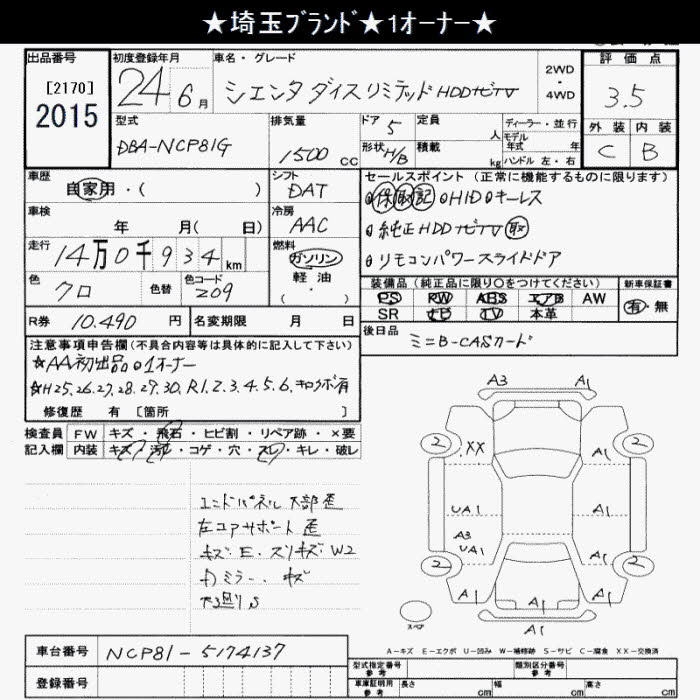 ★埼玉ﾌﾞﾗﾝﾄﾞ★1オーナー★
出品番号
[2170]
2015
初度登録年月
24 6月
車名・グレード
シエンタ ダイスリミテッド HDDナビTV
2WD
・
4WD
評価点
3.5
型式
DBA-NCP81G
排気量
1500 CC
ドア 5
形状 H/B
定員 人
積載 kg
ディーラー・並行
モデル
年式 年
ハンドル 左・右
外装 内装
C B
車歴
自家用・( )
シフト
DAT
車検
年 月( 日)
冷房
AAC
走行
14万0千934km
燃料
ガソリン
軽・油
・( )
色
クロ
色替
色コード
209
R券 10.490 円
名変期限 月 日
セールスポイント (正常に機能するものに限ります)
保 取 記 HID キーレス
純正HDDナビTV 取
リモコンパワースライドドア
装備品(純正品に限り○をつけてください)
新車保証書
PS PW ABS エアB AW
SR ナビ TV 本革
有・無
後日品
ミニB-CASカード
注意事項申告欄(不具合内容等は具体的に記入して下さい)
★AA初出品 1オーナー
★H25.26.27.28.29.30.R1.2.3.4.5.6.キロク簿有
修復歴 有 [箇所 ]
検査員
記入欄
FW キズ・飛石・ヒビ割・リペア跡・×要
内装 キズ・汚レ・コゲ・穴・スレ・キレ・破レ
エンドパネル 下部歪
左コアサポート 歪
キズ・E・スリキズ・W2
カミラー、キズ
下廻りS
A3 A1
2 2
XX
UA1 A1
A3
UA1 A1
2 2
A1 A1
A1
A1
スペア
A-キズ E-エクボ U-凹み W-補修跡 S-サビ C-腐食 XX-交換済
車台番号 NCP81-5174137
登録番号
型式指定番号
参考
類別区分番号
参考
車庫証明用
参考
長さ cm
幅 cm
高さ cm